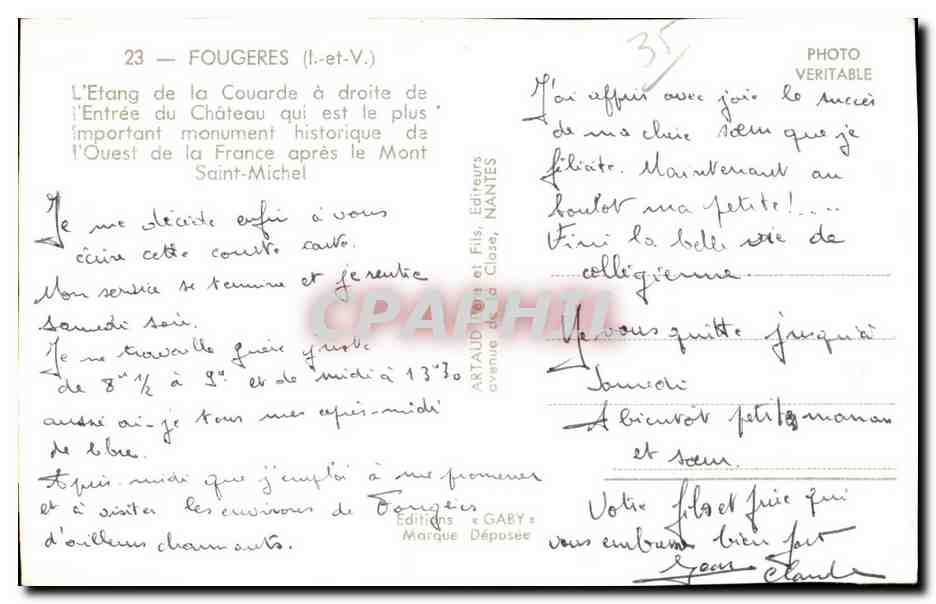 23 — FOUGERES (I.-et-V.)
L'Etang de la Couarde à droite de
l'Entrée du Château qui est le plus
important monument historique de
l'Ouest de la France après le Mont
Saint-Michel
Je me décide enfin à vous
écrire cette courte carte.
Mon service se termine et je rentre
samedi soir.
Je ne travaille guère que
de 8h 1/2 à 9h et de midi à 13h30
aussi ai-je tous mes après-midi
de libre.
Après-midi que j'emploi à me promener
et à visiter les environs de Fougères
d'ailleurs charmants.
Editions « GABY »
Marque Déposée
ARTAUD Père et Fils, Editeurs
avenue de la Close, NANTES
CPAPHIL
35
PHOTO
VERITABLE
J'ai appris avec joie le succès
de ma chère sœur que je
félicite. Maintenant au
boulot ma petite!....
Fini la belle vie de
collégienne.
Je vous quitte jusqu'à
Samedi
A bientôt petite maman
et sœur.
Votre fils et frère qui
vous embrasse bien fort
Jean Claude